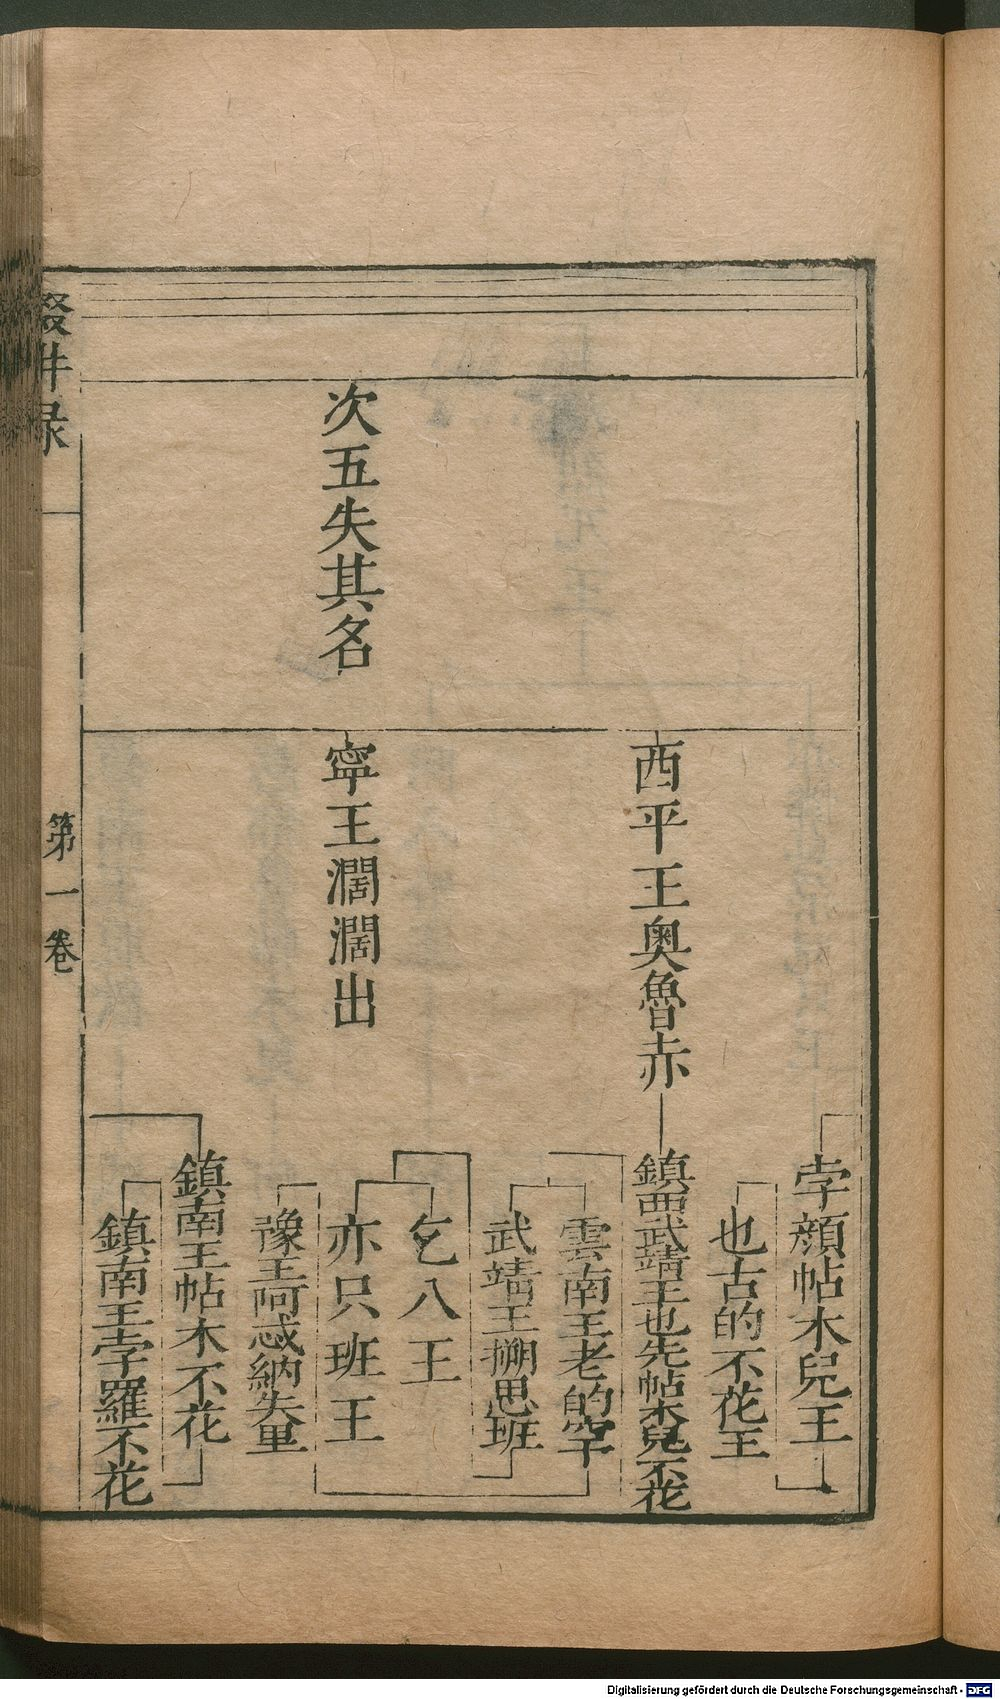 孛顏帖木兒王
也古的不花王
西平王奧魯赤
鎮西武靖王也先帖木兒不花
雲南王老的罕
武靖王搠思班
乞八王
次五失其名
寧王濶濶出
亦只班王
豫王阿忒納失里
鎮南王帖木不花
鎮南王孛羅不花
輟畊录
第一卷
Digitalisierung gefördert durch die Deutsche Forschungsgemeinschaft - DFG